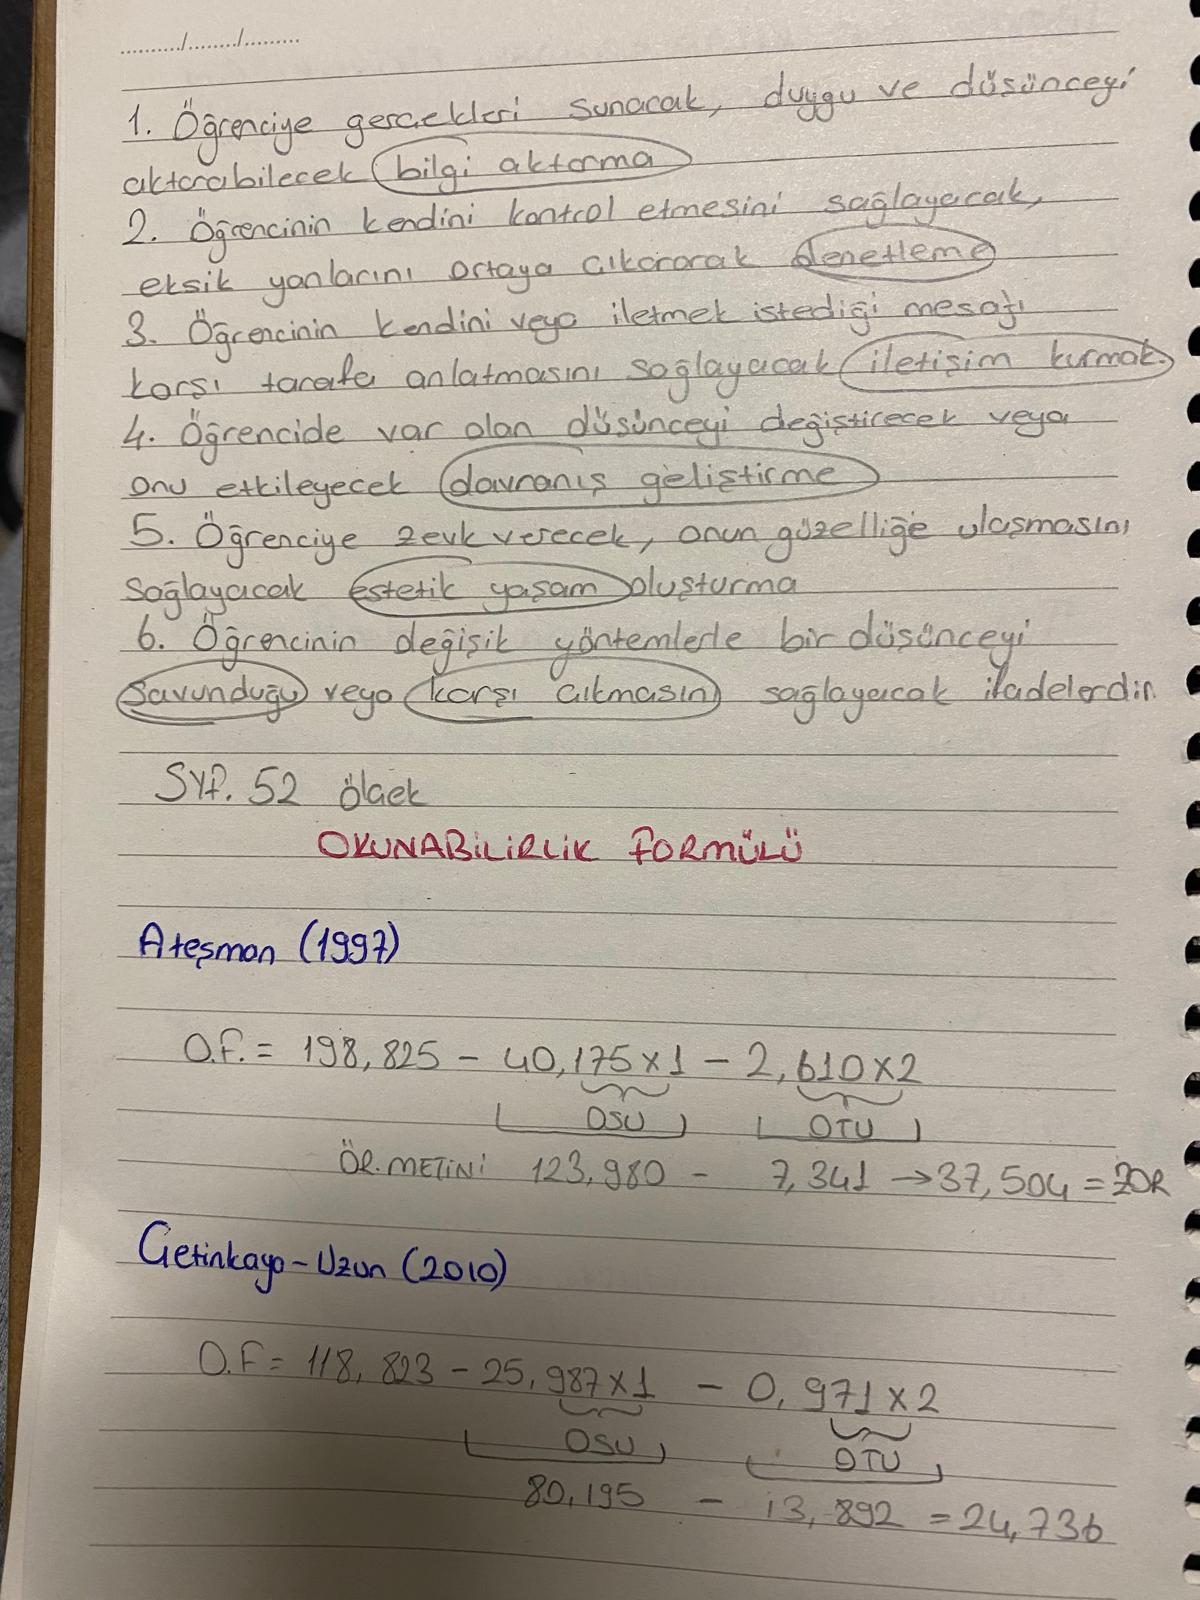 ........../......../.........
1. Öğrenciye gerçekleri sunacak, duygu ve düşünceyi
aktarabilecek bilgi aktarma
2. Öğrencinin kendini kontrol etmesini sağlayacak,
eksik yanlarını ortaya çıkararak denetleme
3. Öğrencinin kendini veya iletmek istediği mesajı
karşı tarafa anlatmasını sağlayacak iletişim kurmak.
4. Öğrencide var olan düşünceyi değiştirecek veya
onu etkileyecek davranış geliştirme
5. Öğrenciye zevk verecek, onun güzelliğe ulaşmasını
sağlayacak estetik yaşam oluşturma
6. Öğrencinin değişik yöntemlerle bir düşünceyi
savunduğu veya karşı çıkmasını sağlayacak ifadelerdir.
SYF. 52 ölçek
OKUNABİLİRLİK FORMÜLÜ
Ateşman (1997)
O.F. = 198,825 - 40,175x1 - 2,610x2
OSU OTU
ÖR. METİNİ 123,980 - 7,341 → 37,504 = ZOR
Çetinkaya-Uzun (2010)
O.F = 118,823 - 25,987x1 - 0,971x2
OSU OTU
80,195 - 13,892 = 24,736